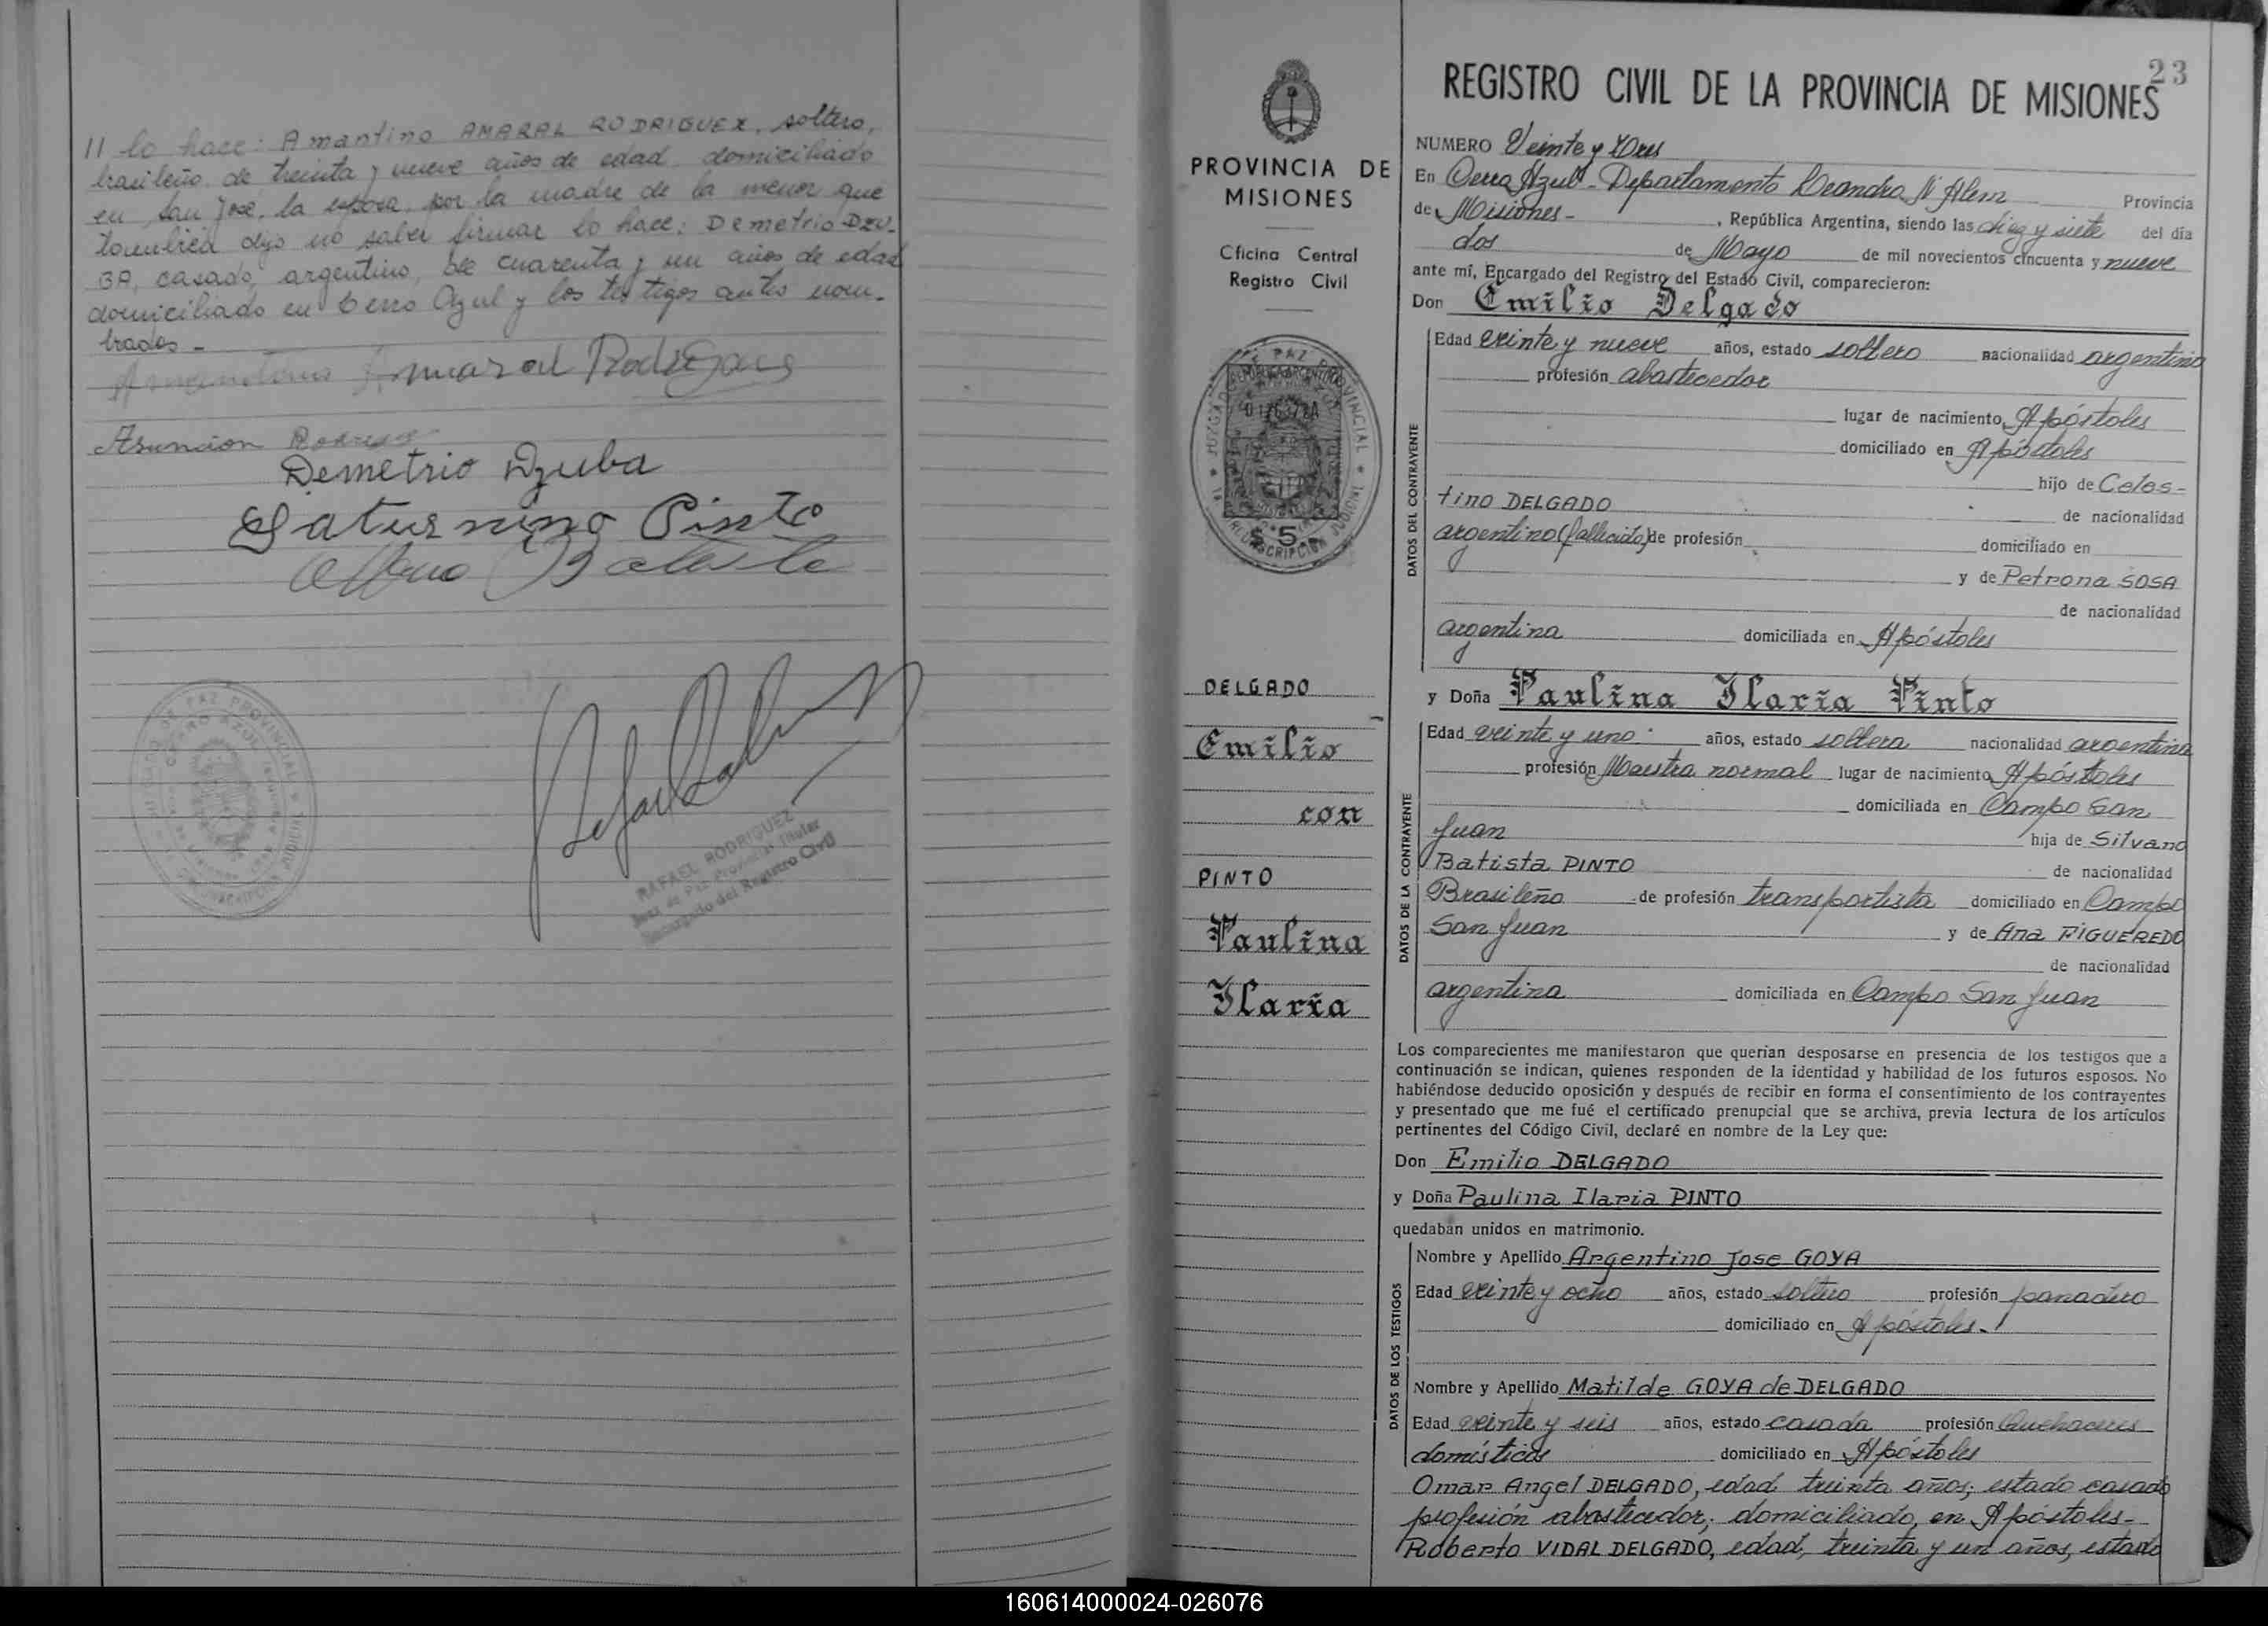 // lo hace: Amantino AMARAL RODRIGUEX, soltero,
brasileño, de treinta y nueve años de edad domiciliado
en San José, la esposa, por la madre de la menor que
tambien dijo no saber firmar lo hace: Demetrio DZU-
BA, casado, argentino, de cuarenta y un años de edad
domiciliado en Cerro Azul y los testigos antes nom-
brados -
Amaral Rodrigues
Asuncion
Demetrio Dzuba
Saturnino Pinto
JUZGADO DE PAZ PROVINCIAL
CERRO AZUL
RAFAEL RODRIGUEZ
Juez de Paz Provincial Titular
Encargado del Registro Civil
23
REGISTRO CIVIL DE LA PROVINCIA DE MISIONES
PROVINCIA DE
MISIONES
Oficina Central
Registro Civil
$ 5
DELGADO
Emilio
con
PINTO
Paulina
Ilaria
NUMERO Veinte y Tres
En Cerro Azul - Departamento Leandro N Alem Provincia
de Misiones - , República Argentina, siendo las diez y siete del día
dos de Mayo de mil novecientos cincuenta y nueve
ante mí, Encargado del Registro del Estado Civil, comparecieron:
Don Emilio Delgado
DATOS DEL CONTRAYENTE
Edad veinte y nueve años, estado soltero nacionalidad argentino
profesión abastecedor
lugar de nacimiento Apóstoles
domiciliado en Apóstoles
hijo de Celes-
tino DELGADO
de nacionalidad
argentino (fallecido) de profesión domiciliado en
y de Petrona SOSA
de nacionalidad
argentina domiciliada en Apóstoles
y Doña Paulina Ilaria Pinto
DATOS DE LA CONTRAYENTE
Edad veinte y uno años, estado soltera nacionalidad argentina
profesión Maestra normal lugar de nacimiento Apóstoles
domiciliada en Campo San
Juan hija de Silvano
Batista PINTO de nacionalidad
Brasileño de profesión transportista domiciliado en Campo
San Juan y de Ana FIGUEREDO
de nacionalidad
argentina domiciliada en Campo San Juan
Los comparecientes me manifestaron que querían desposarse en presencia de los testigos que a
continuación se indican, quienes responden de la identidad y habilidad de los futuros esposos. No
habiéndose deducido oposición y después de recibir en forma el consentimiento de los contrayentes
y presentado que me fué el certificado prenupcial que se archiva, previa lectura de los artículos
pertinentes del Código Civil, declaré en nombre de la Ley que:
Don Emilio DELGADO
y Doña Paulina Ilaria PINTO
quedaban unidos en matrimonio.
DATOS DE LOS TESTIGOS
Nombre y Apellido Argentino Jose GOYA
Edad veinte y ocho años, estado soltero profesión panadero
domiciliado en Apóstoles.
Nombre y Apellido Matilde GOYA de DELGADO
Edad veinte y seis años, estado casada profesión Quehaceres
domésticos domiciliado en Apóstoles
Omar Angel DELGADO, edad treinta años; estado casado
profesión abastecedor; domiciliado, en Apóstoles-
Roberto VIDAL DELGADO, edad, treinta y un años, estado
160614000024-026076